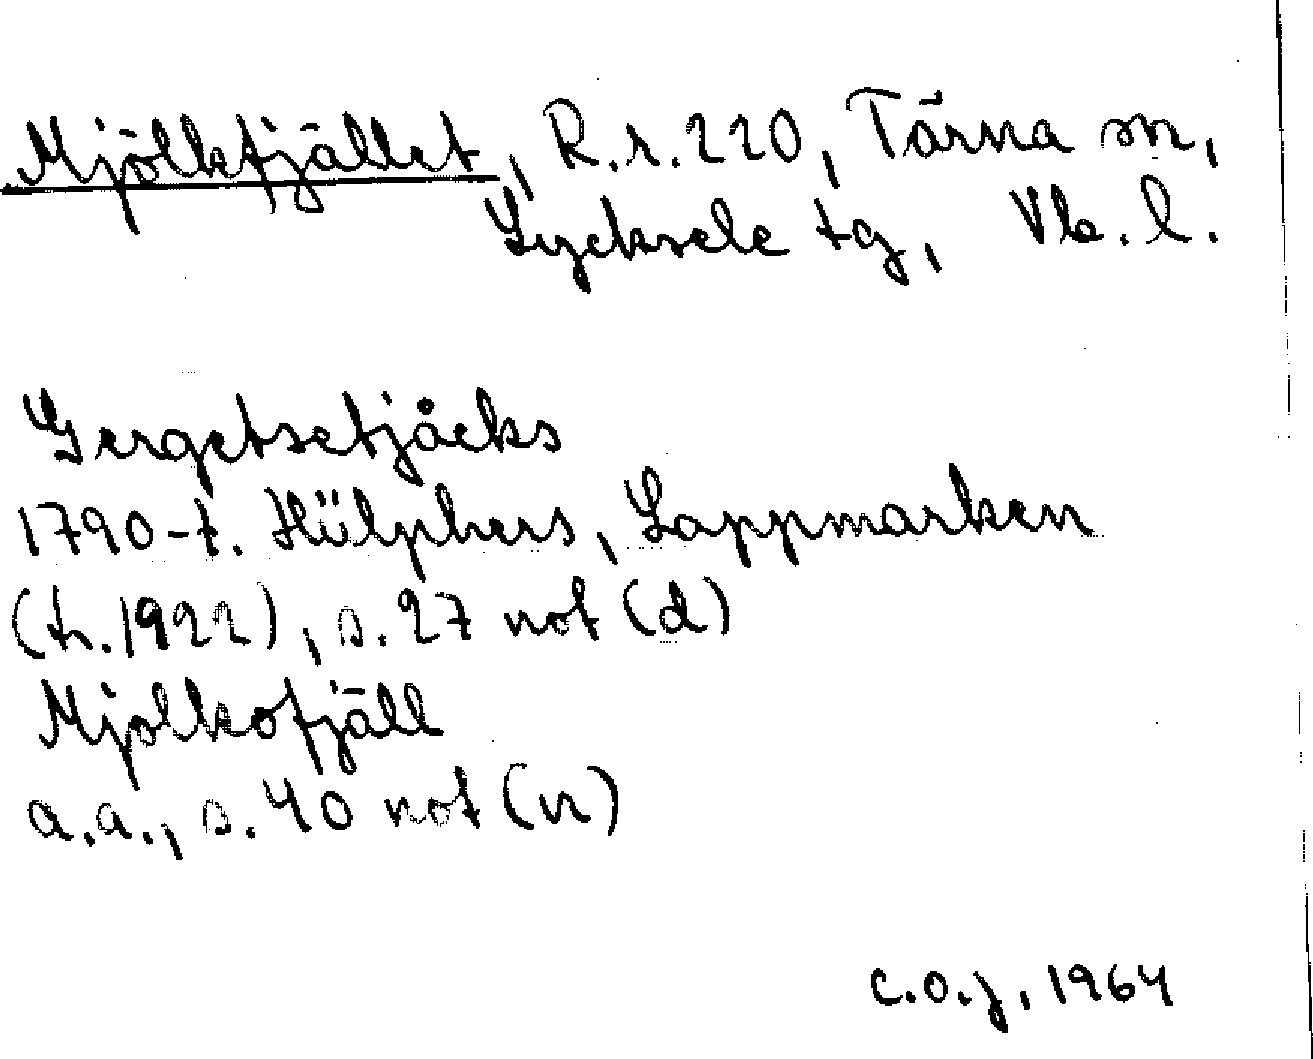 Mjölkfjället, R.r.220, Tärna sn,
Lycksele tg, Vb.l.
Gergetsetjåcks
1790-t. Hülphers, Lappmarken
(tr.1922), s.27 not (d)
Mjolkofjäll
a.a., s.40 not (n)
C.O.J, 1964